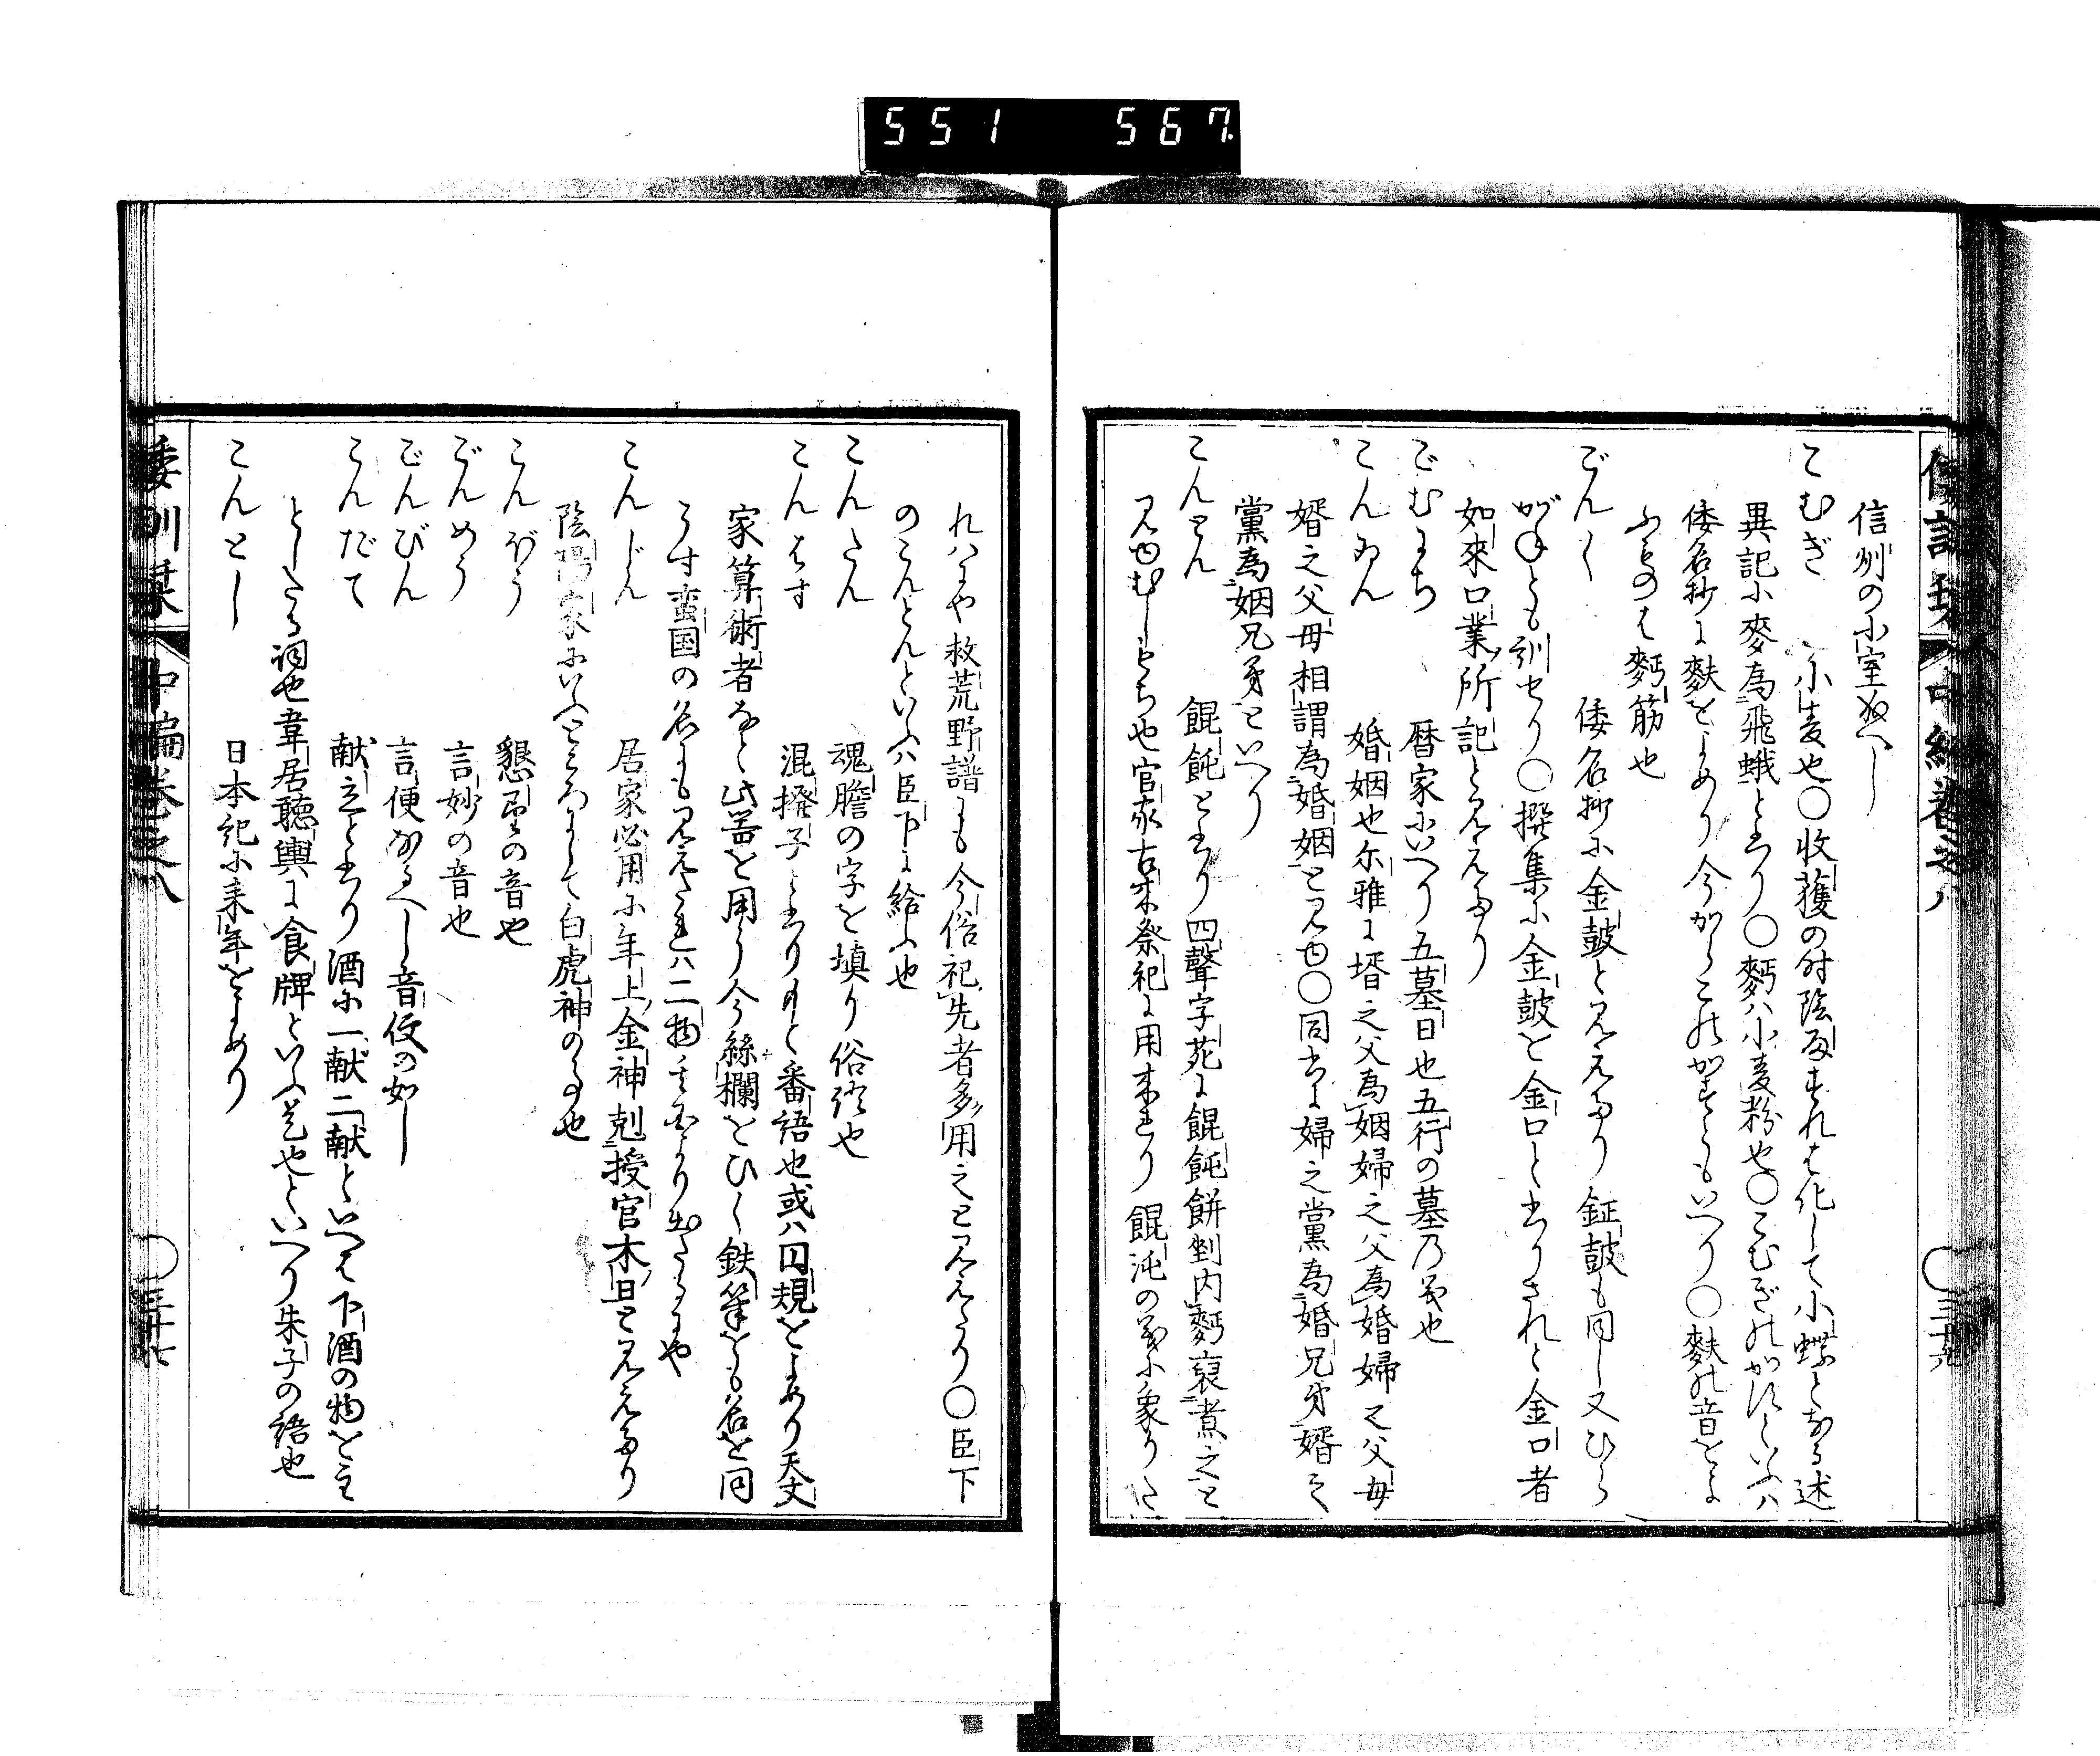 551 567
信州の小室なへし
こむぎ 小麦也〇收獲の時陰雨すれは化して小蝶となる述
異記に麥為飛蛾と書り〇麪ハ小麦粉也〇こむぎのかすといふハ
倭名抄に麩をよめり今からこのかすともいへり〇麩の音をよ
ふものは麪筋也
ごんく 倭名抄に金皷と見えたり鉦皷も同し又ひら
がねとも訓せり〇撰集に金皷を金口と書りされと金口者
如來口業所記と見えたり
ごむまち 暦家にいへり五墓日也五行の墓乃義也
こんゐん 婚姻也尓雅に壻之父為姻婦之父為婚婦之父母
婿之父母相謂為婚姻と見ゆ〇同書に婦之黨為婚兄弟婿之
黨為姻兄弟といへり
こんとん 餛飩と書り四聲字苑に餛飩餅剉内麪裹煮之と
見ゆむしもち也官家古来祭祀に用来れり餛沌の義に象りた
れハにや救荒野譜にも今俗祀先者多用之と見えたり〇臣下
のこんとんといふハ臣下に給ふ也
こんたん 魂膽の字を填り俗語也
こんはす 混撥子と書りもと番語也或ハ円規をよめり天文
家算術者なと此器を用う今絲欄をひく鉄筆をも名を同
うす蛮国の名にも見えたれハ二物も其国より出たるにや
こんじん 居家必用に年上金神剋授官木日と見えたり
陰陽家にいふところにして白虎神の事也
こんぼう 懇望の音也
ごんめう 言妙の音也
ごんびん 言便なるへし音便の如し
こんだて 献立と書り酒に一献二献といへは下酒の物を主
としたる詞也韋居聽輿に食牌といふ是也といへり朱子の語也
こんとし 日本紀に来年をよめり
倭訓栞 中編巻之八 〇三十七